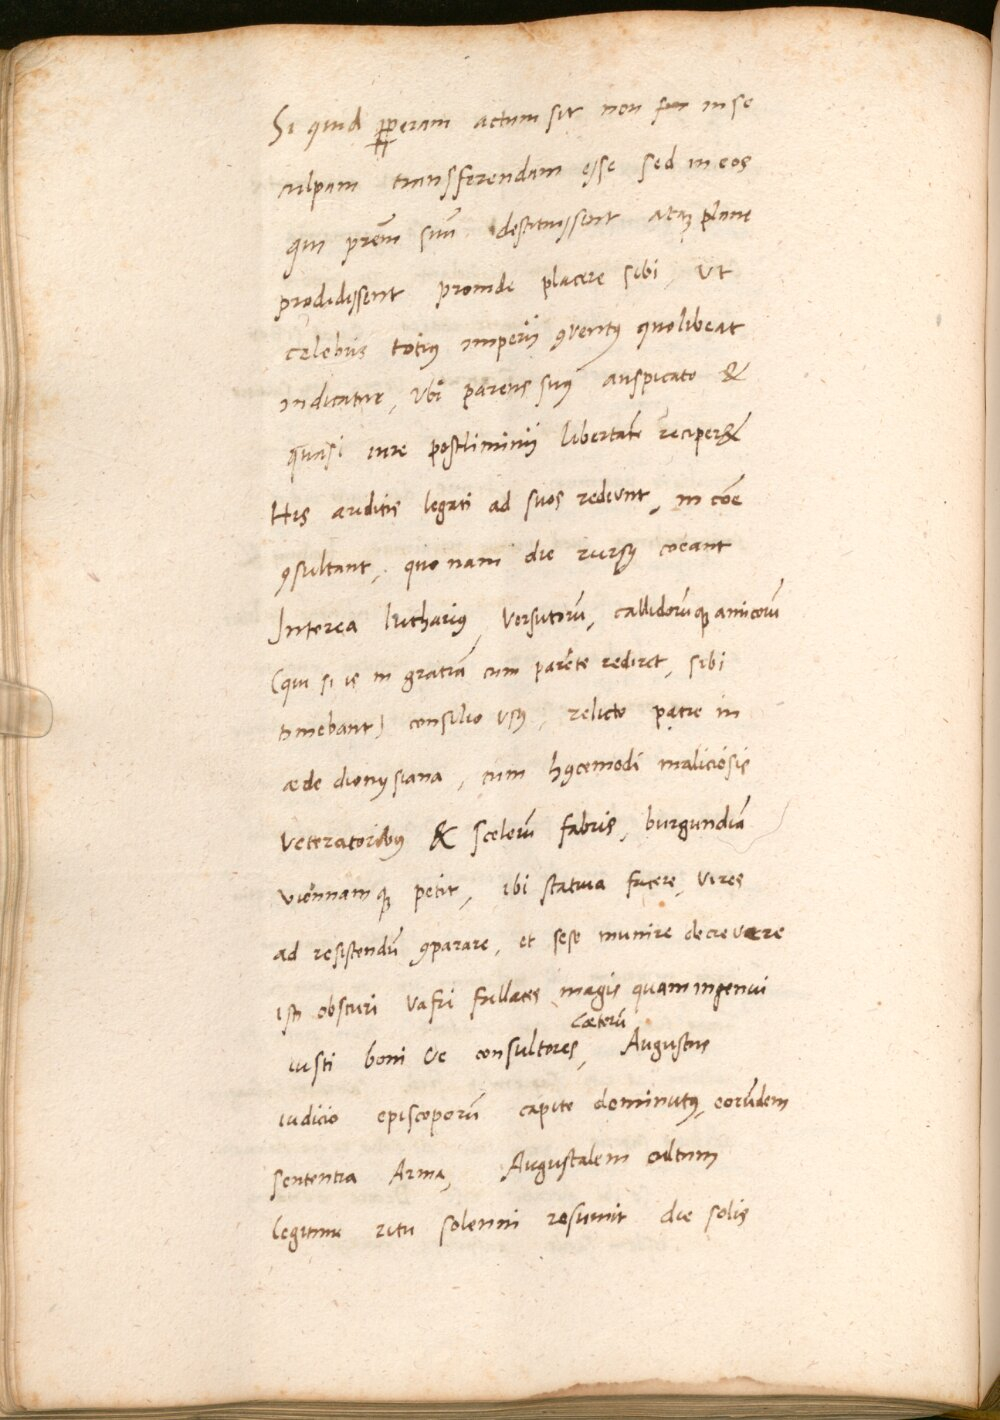 Si quid ꝑperam actum sit non in se
culpam transferendam esse sed in eos
qui prēm suū destituissent atqȝ plane
prodidissent proinde placere sibi, ut
celebris totiꝰ imperij ꝯventꝰ quolibeat
indicatur, Ubi parens suꝰ auspicato &
quasi iure postliminij libertatē reciper&
His auditis legati ad suos redeunt, in cōe
ꝯsultant, quo nam die rursꝰ coeant
Interea lutharius, Versutorū, callidorūqȝ amicorū
(qui si is in gratiā cum parēte rediret, sibi
timebant) consilio usꝰ, relicto patre in
æde dionysiana, cum hꝰcemodi maliciosis
veteratoribꝰ & scelerū fabris, burgundiā
viennamqȝ petit, ibi statiua facere, vires
ad resistendū ꝯparare, et sese munire decrevere
isti obscuri vafri fallaces magis quam ingenui
iusti boni ve consultores, Cæterū Augustus
iudicio episcoporū capite deminutꝰ, eorūdem
sententia Arma, Augustalem cultum
legitime ritu solenni resumit die solis